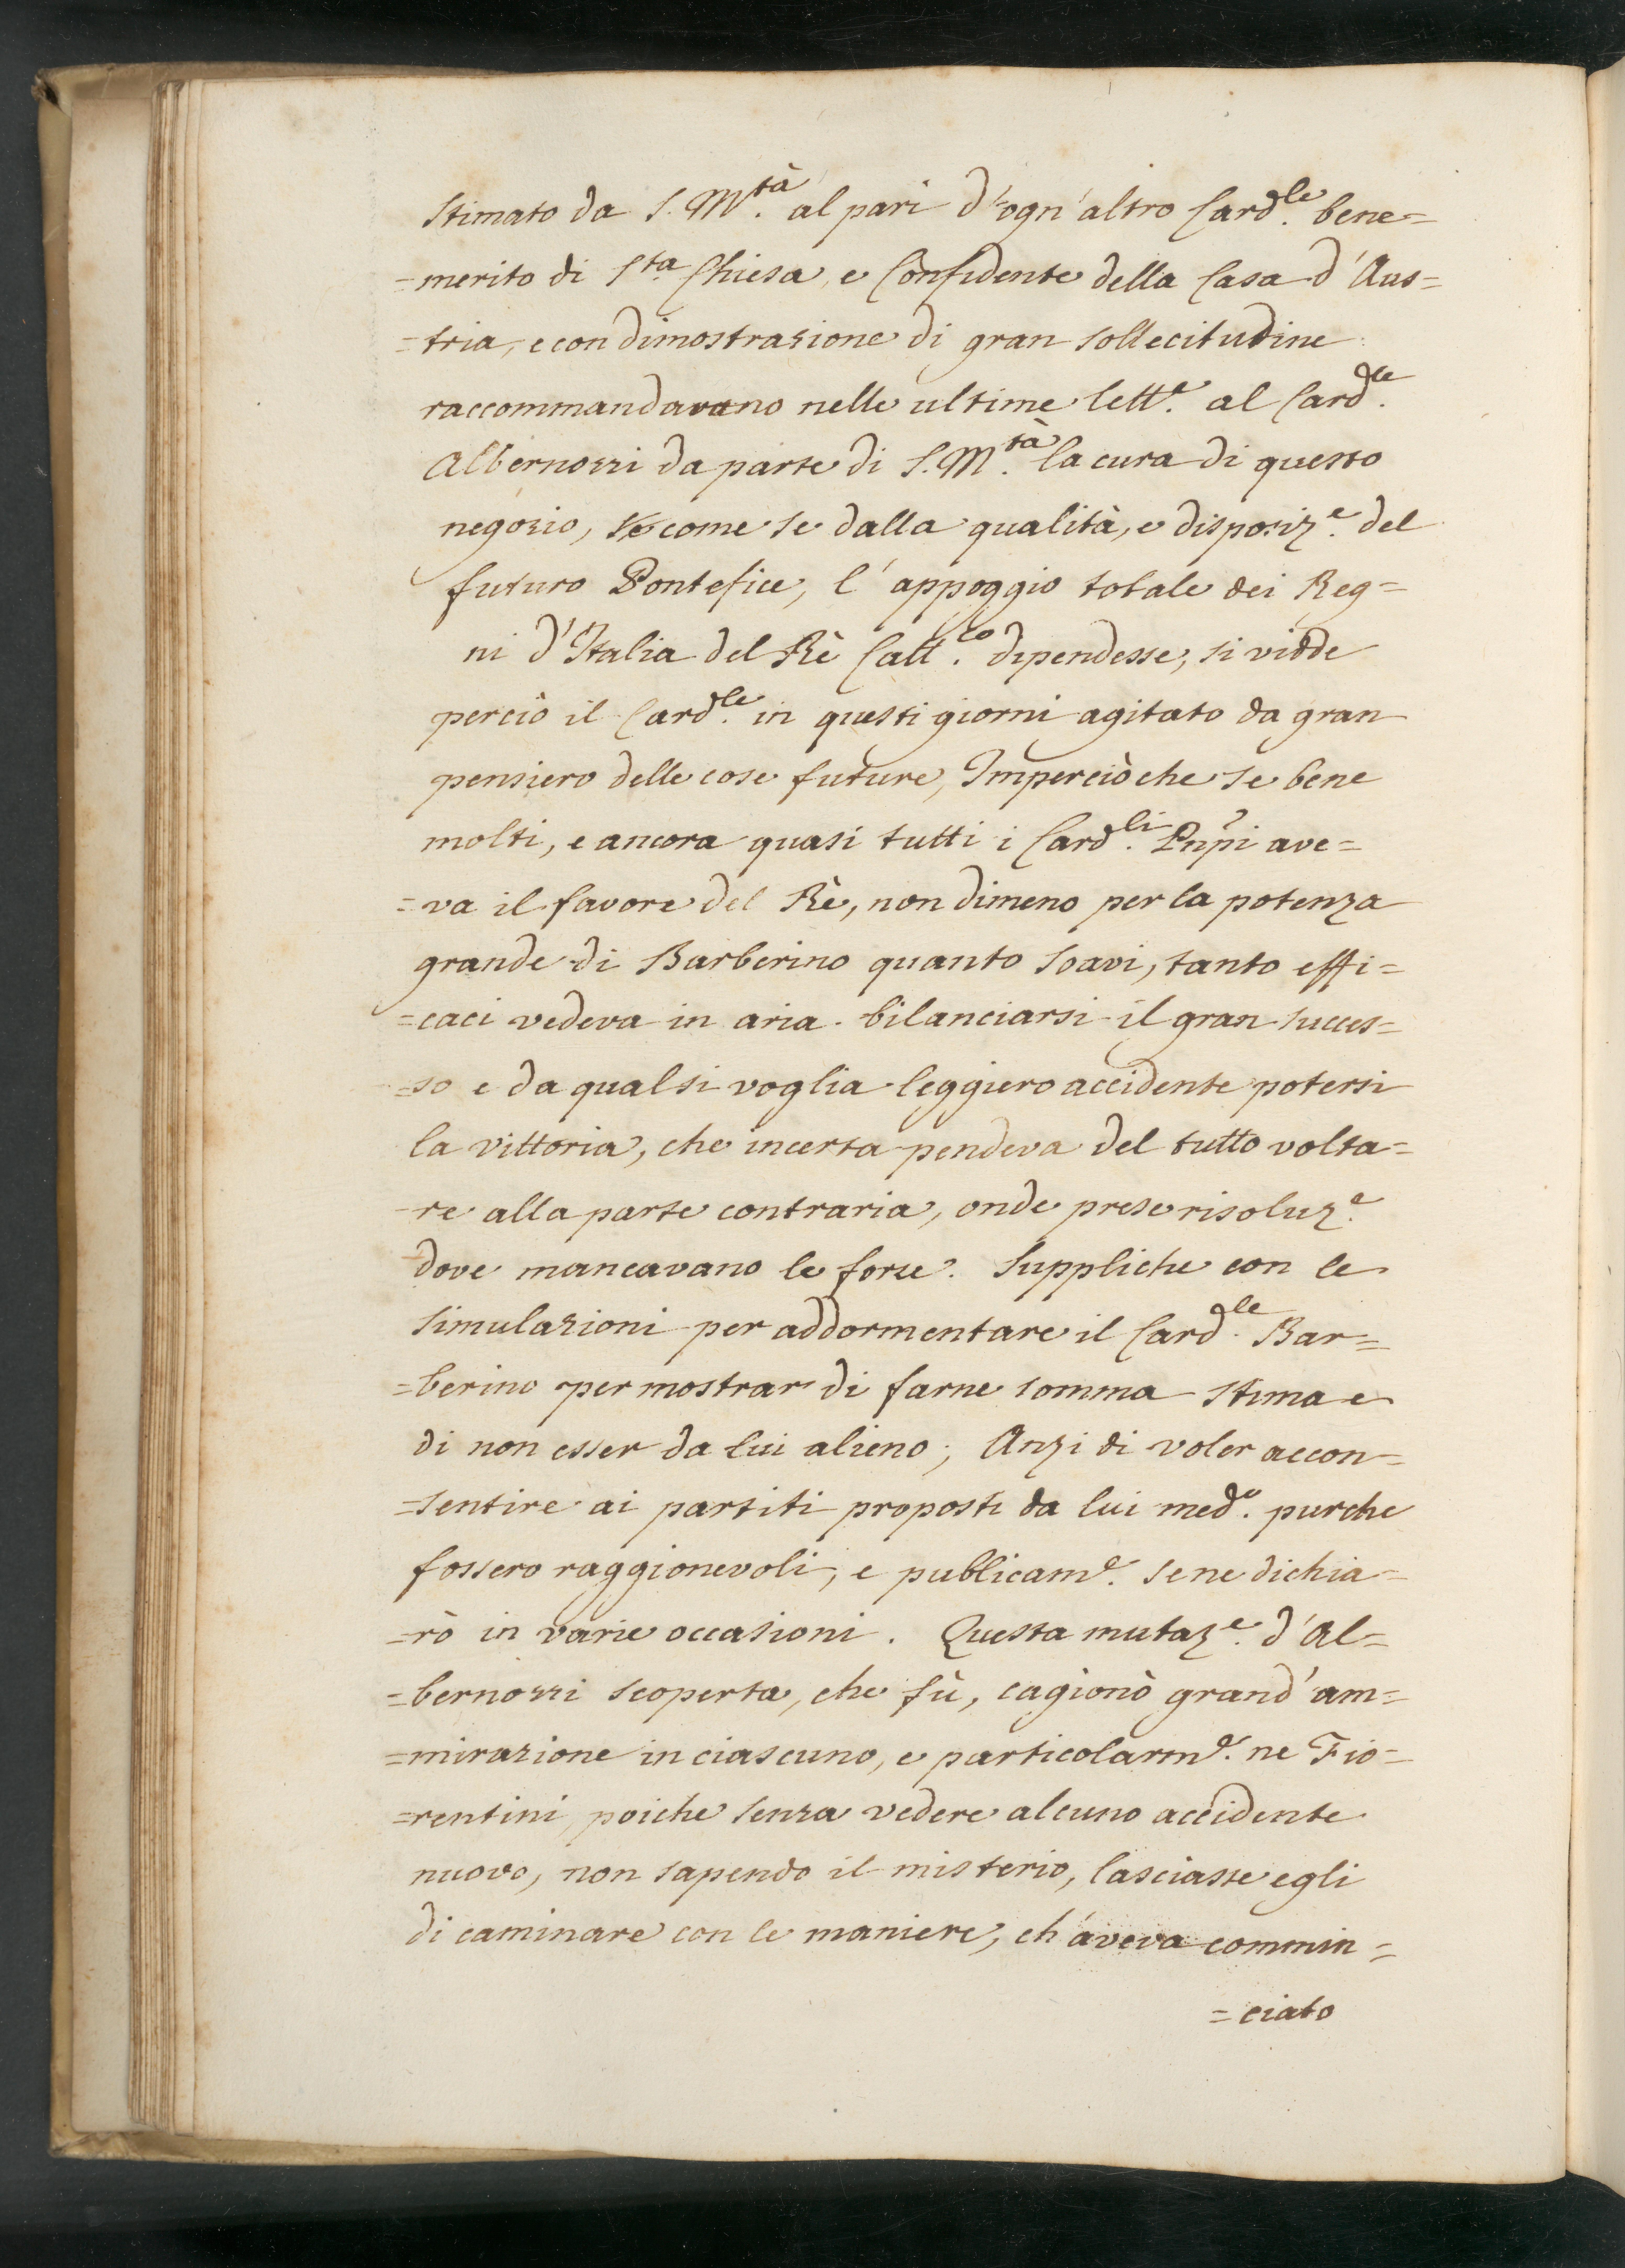 Stimato da S. M.tà al pari d'ogn'altro Card.le bene=
=merito di S.ta Chiesa, e Confidente della Casa d'Aus=
=tria, e con dimostrazione di gran sollecitudine
raccommandavano nelle ultime lett.e al Card.le
Albernozzi da parte di S. M.tà la cura di questo
negozio, come se dalla qualità, e disposiz.e del
futuro Pontefice, l'appoggio totale dei Reg=
ni d'Italia del Rè Catt.co dipendesse, si vidde
perciò il Card.le in questi giorni agitato da gran
pensiero delle cose future, Imperciòche se bene
molti, e ancora quasi tutti i Card.li Pnpi ave=
=va il favore del Rè, non dimeno per la potenza
grande di Barberino quanto soavi, tanto effi=
=caci vedeva in aria bilanciarsi il gran succes=
=so e da qualsi voglia leggiero accidente potersi
la vittoria, che incerta pendeva del tutto volta=
=re alla parte contraria, onde prese risoluz.e
dove mancavano le forze. Suppliche con le
simulazioni per addormentare il Card.le Bar=
=berino per mostrar di farne somma stima e
di non esser da lui alieno; Anzi di voler accon=
=sentire ai partiti proposti da lui med.o purche
fossero raggionevoli, e publicam.e se ne dichia=
=rò in varie occasioni. Questa mutaz.e d'Al=
=bernozzi scoperta, che fù, cagionò grand'am=
=mirazione in ciascuno, e particolarm.e ne Fio=
=rentini, poiche senza vedere alcuno accidente
nuovo, non sapendo il misterio, lasciasse egli
di caminare con le maniere, ch'aveva commin=
=ciato